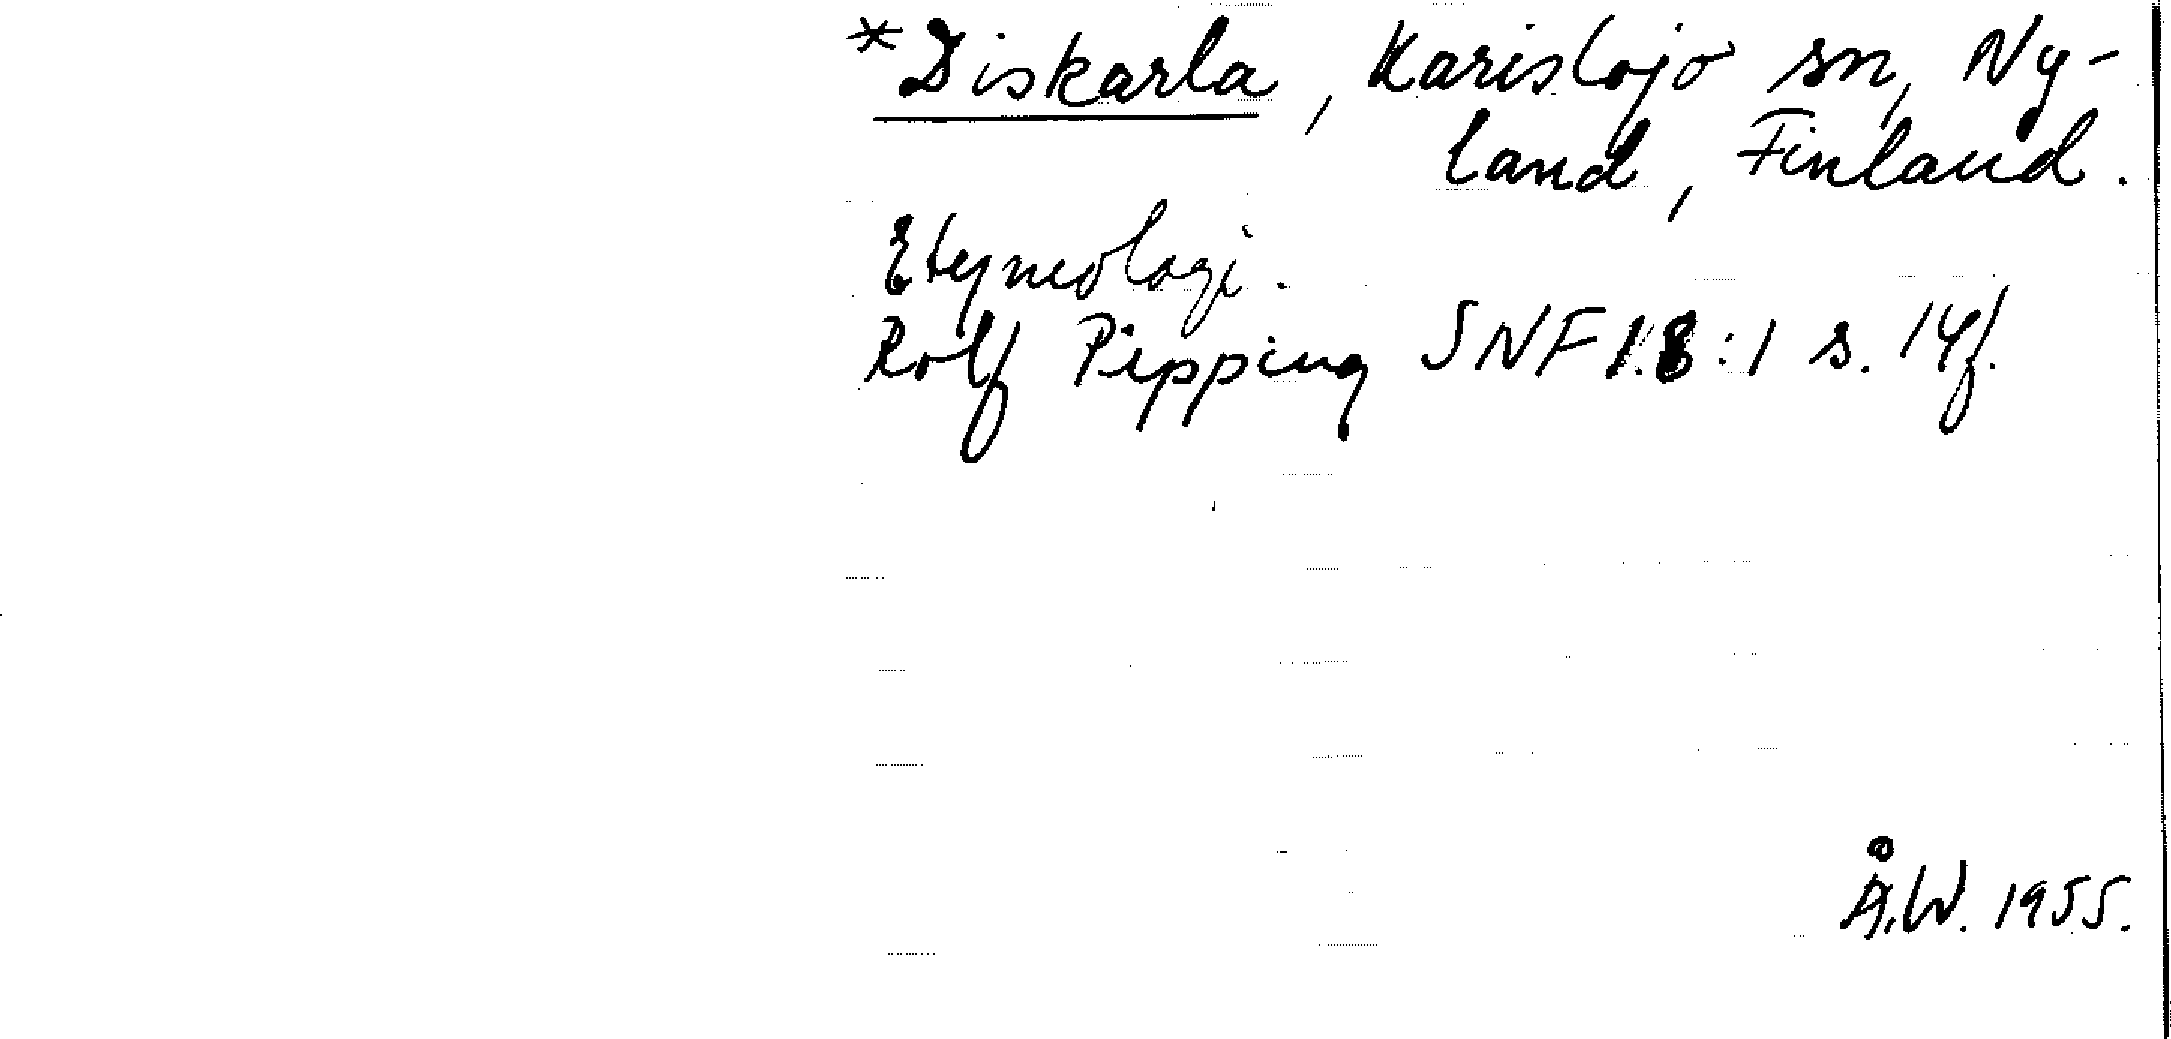 *Diskarla, Karislojo sn, Ny-
land, Finland.
Etymologi.
Rolf Pipping SNF 18:1 s. 14f.
Å.W. 1955.